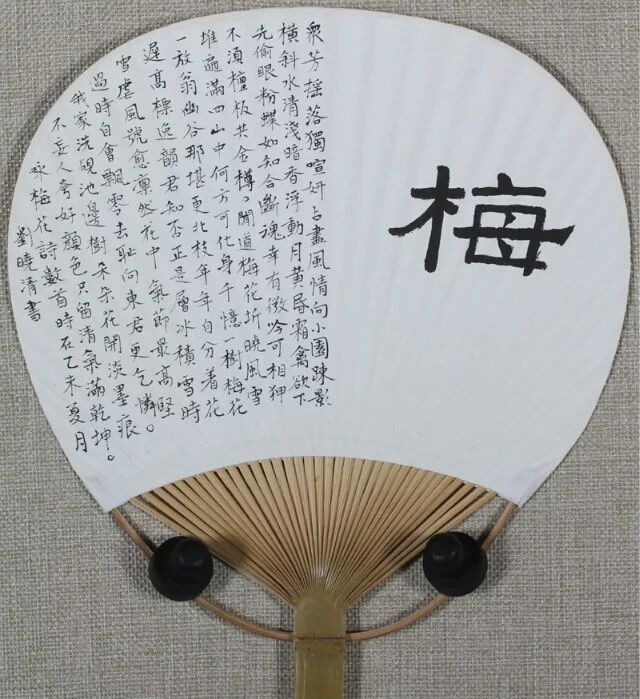 梅
眾芳摇落獨喧妍占盡風情向小園疎影
横斜水清淺暗香浮動月黄昏霜禽欲下
先偷眼粉蝶如知合斷魂幸有微吟可相狎
不須檀板共金樽。聞道梅花坼曉風雪
堆遍滿四山中何方可化身千憶一樹梅花
一放翁幽谷那堪更北枝年年自分着花
遲高標逸韻君知否正是層冰積雪時
雪虐風號愈凛然花中氣節最高堅
過時自會飄零去耻向東君更乞憐。
我家洗硯池邊樹朵朵花開淡墨痕
不要人夸好顔色只留清氣滿乾坤。
咏梅花詩數首時在乙未夏月
劉曉清書